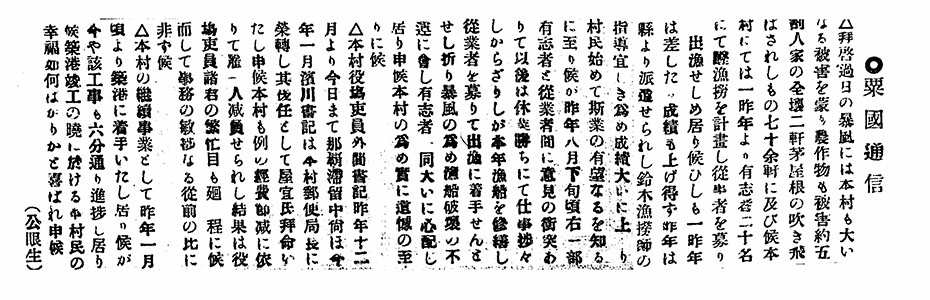 ○粟國通信
△拜啓過日の暴風には本村も大い
なる被害を蒙り農作物も被害約五
割人家の全壞二軒茅屋根の吹き飛
ばされしもの七十余軒に及び候本
村にては一昨年より有志者二十名
にて鰹漁撈を計畫し從事者を募り
出漁せしめ居り候ひしも一昨年
は差したる成績も上げ得ず昨年は
縣より派遣せられし鈴木漁撈師の
指導宜しき爲め成績大いに上り
村民始めて斯業の有望なるを知る
に至り候が昨年八月下旬頃右一部
有志者と從業者間に意見の衝突あ
りて以後は休業勝ちにて仕事捗々
しからざりしが本年漁船を修繕し
從業者を募りて出漁に着手せんと
せし折り暴風の爲め漁船破壞の不
運に會し有志者一同大いに心配し
居り申候本村の爲め實に遺憾の至
りに候
△本村役塲吏員外間書記昨年十二
月より今日まで那覇滯留中尚ほ今
年一月濱川書記は本村郵便局長に
榮轉し其後任として屋宜氏拜命い
たし申候本村も例の經費節减に依
りて雇一人减員せられし結果は役
塲吏員諸君の繁忙目も廻る程に候
而して事務の敏捗なる從前の比に
非ず候
△本村の繼續事業として昨年一月
頃より築港に着手いたし居り候が
今や該工事も六分通り進捗し居り
候築港竣工の曉に於ける本村民の
幸福如何ばかりかと喜ばれ申候
(公眼生)